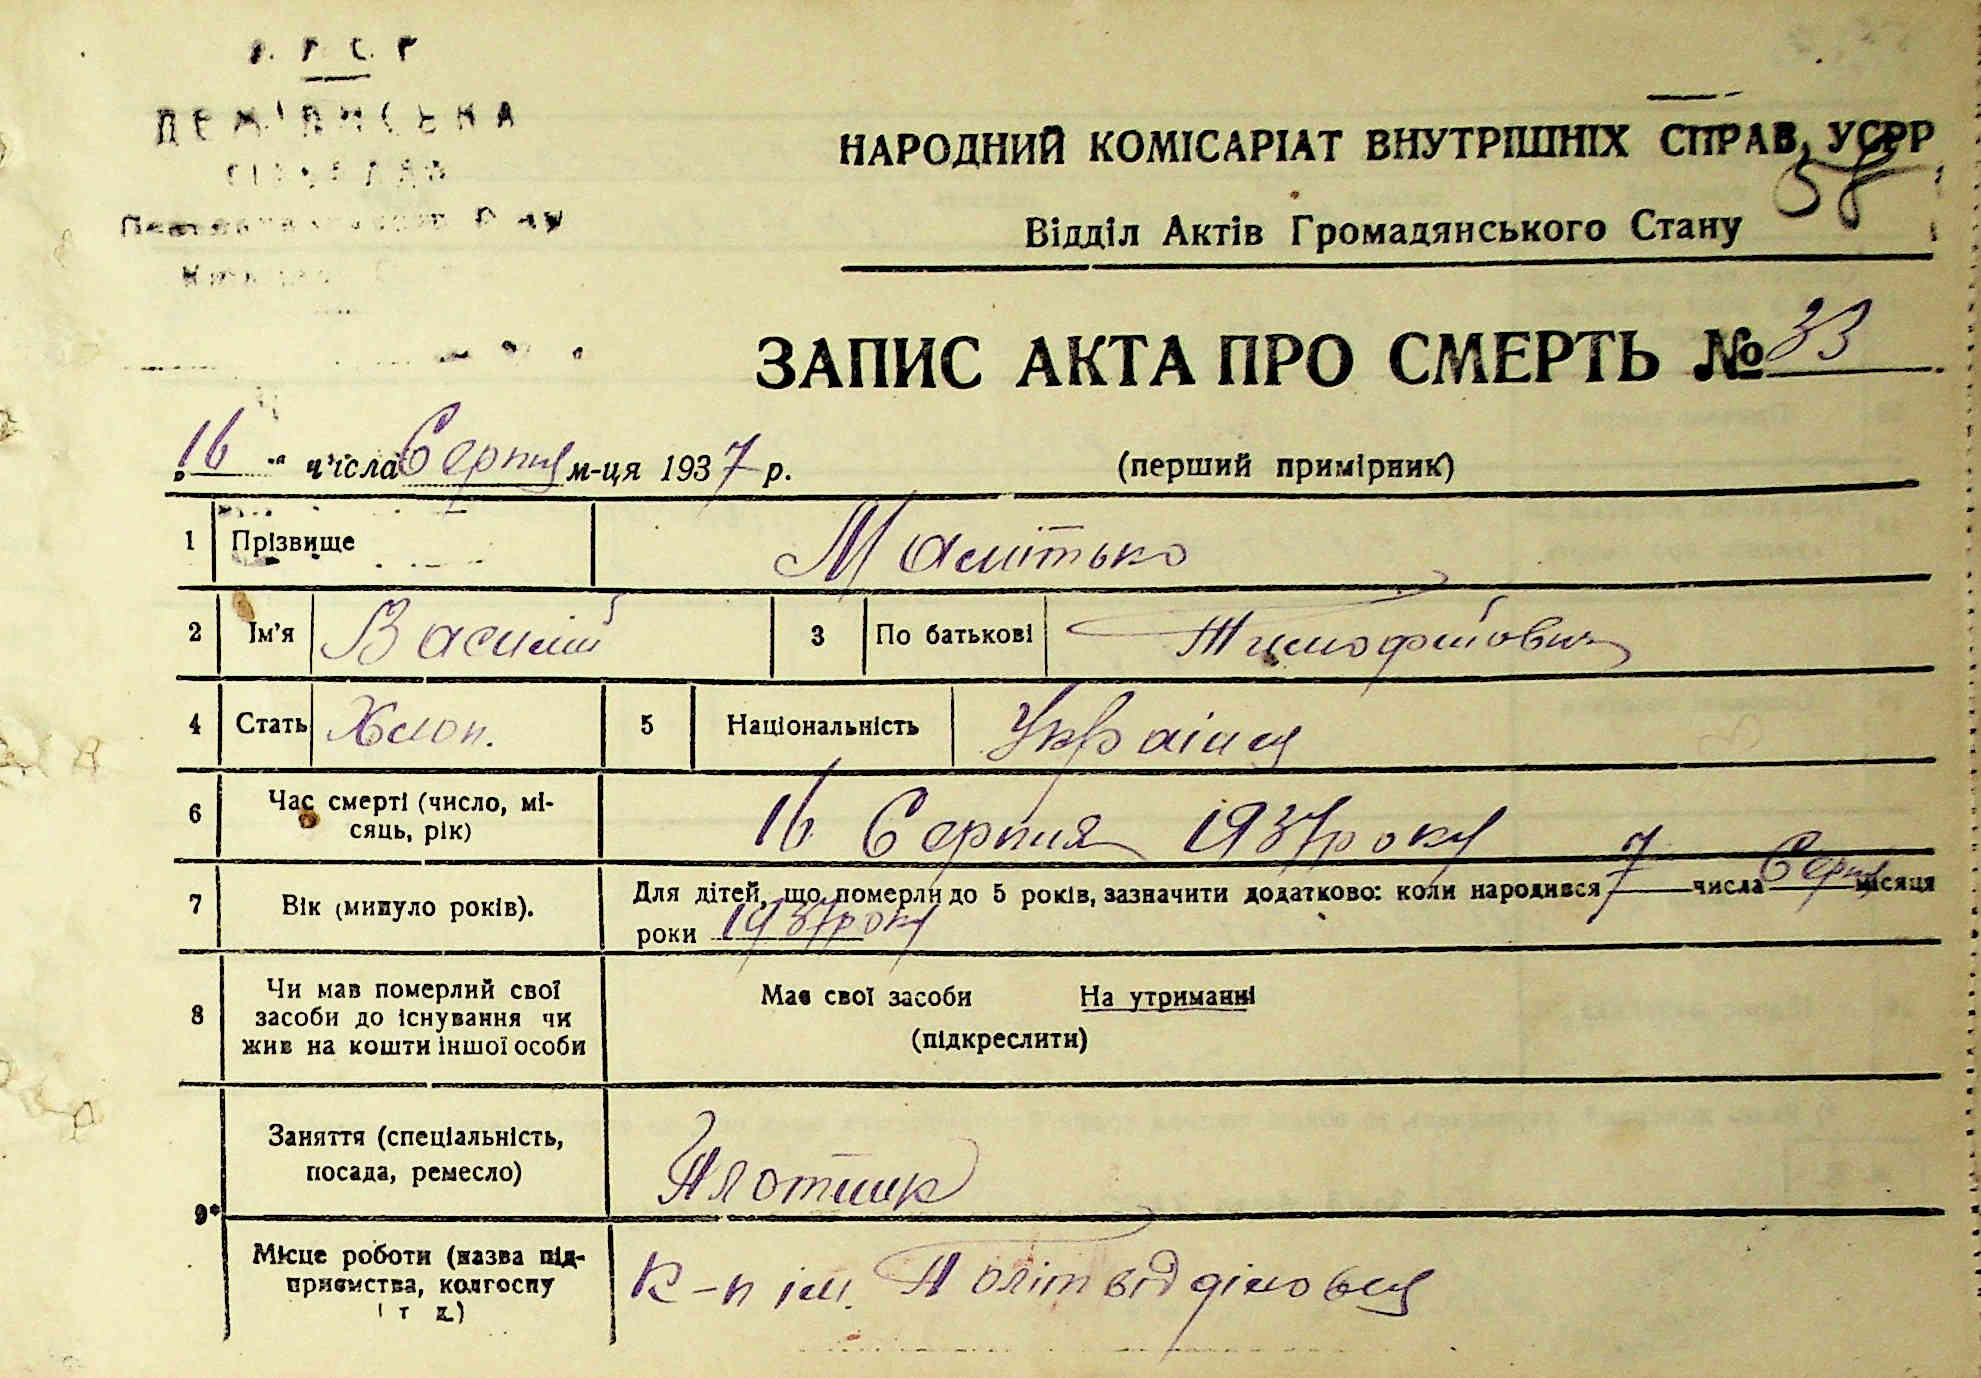 ДЕМІВСЬКА
НАРОДНИЙ КОМІСАРІАТ ВНУТРІШНІХ СПРАВ, УСРР
58
Відділ Актів Громадянського Стану
ЗАПИС АКТА ПРО СМЕРТЬ № 33
„16" числа Серпня м-ця 1937 р. (перший примірник)
1 Прізвище Мамітько
2 Ім'я Василій 3 По батькові Тимофійович
4 Стать Хлоп. 5 Національність Українец
6 Час смерті (число, мі-
сяць, рік) 16 Серпня 1937 року
7 Вік (минуло років). Для дітей, що померли до 5 років, зазначити додатково: коли народився 7 числа Серпня місяця
роки 1937 року
8 Чи мав померлий свої
засоби до існування чи
жив на кошти іншої особи Має свої засоби На утриманні
(підкреслити)
9* Заняття (спеціальність,
посада, ремесло) Плотник
Місце роботи (назва під-
приємства, колгоспу
і т д.) к-п ім. Політвідділовця